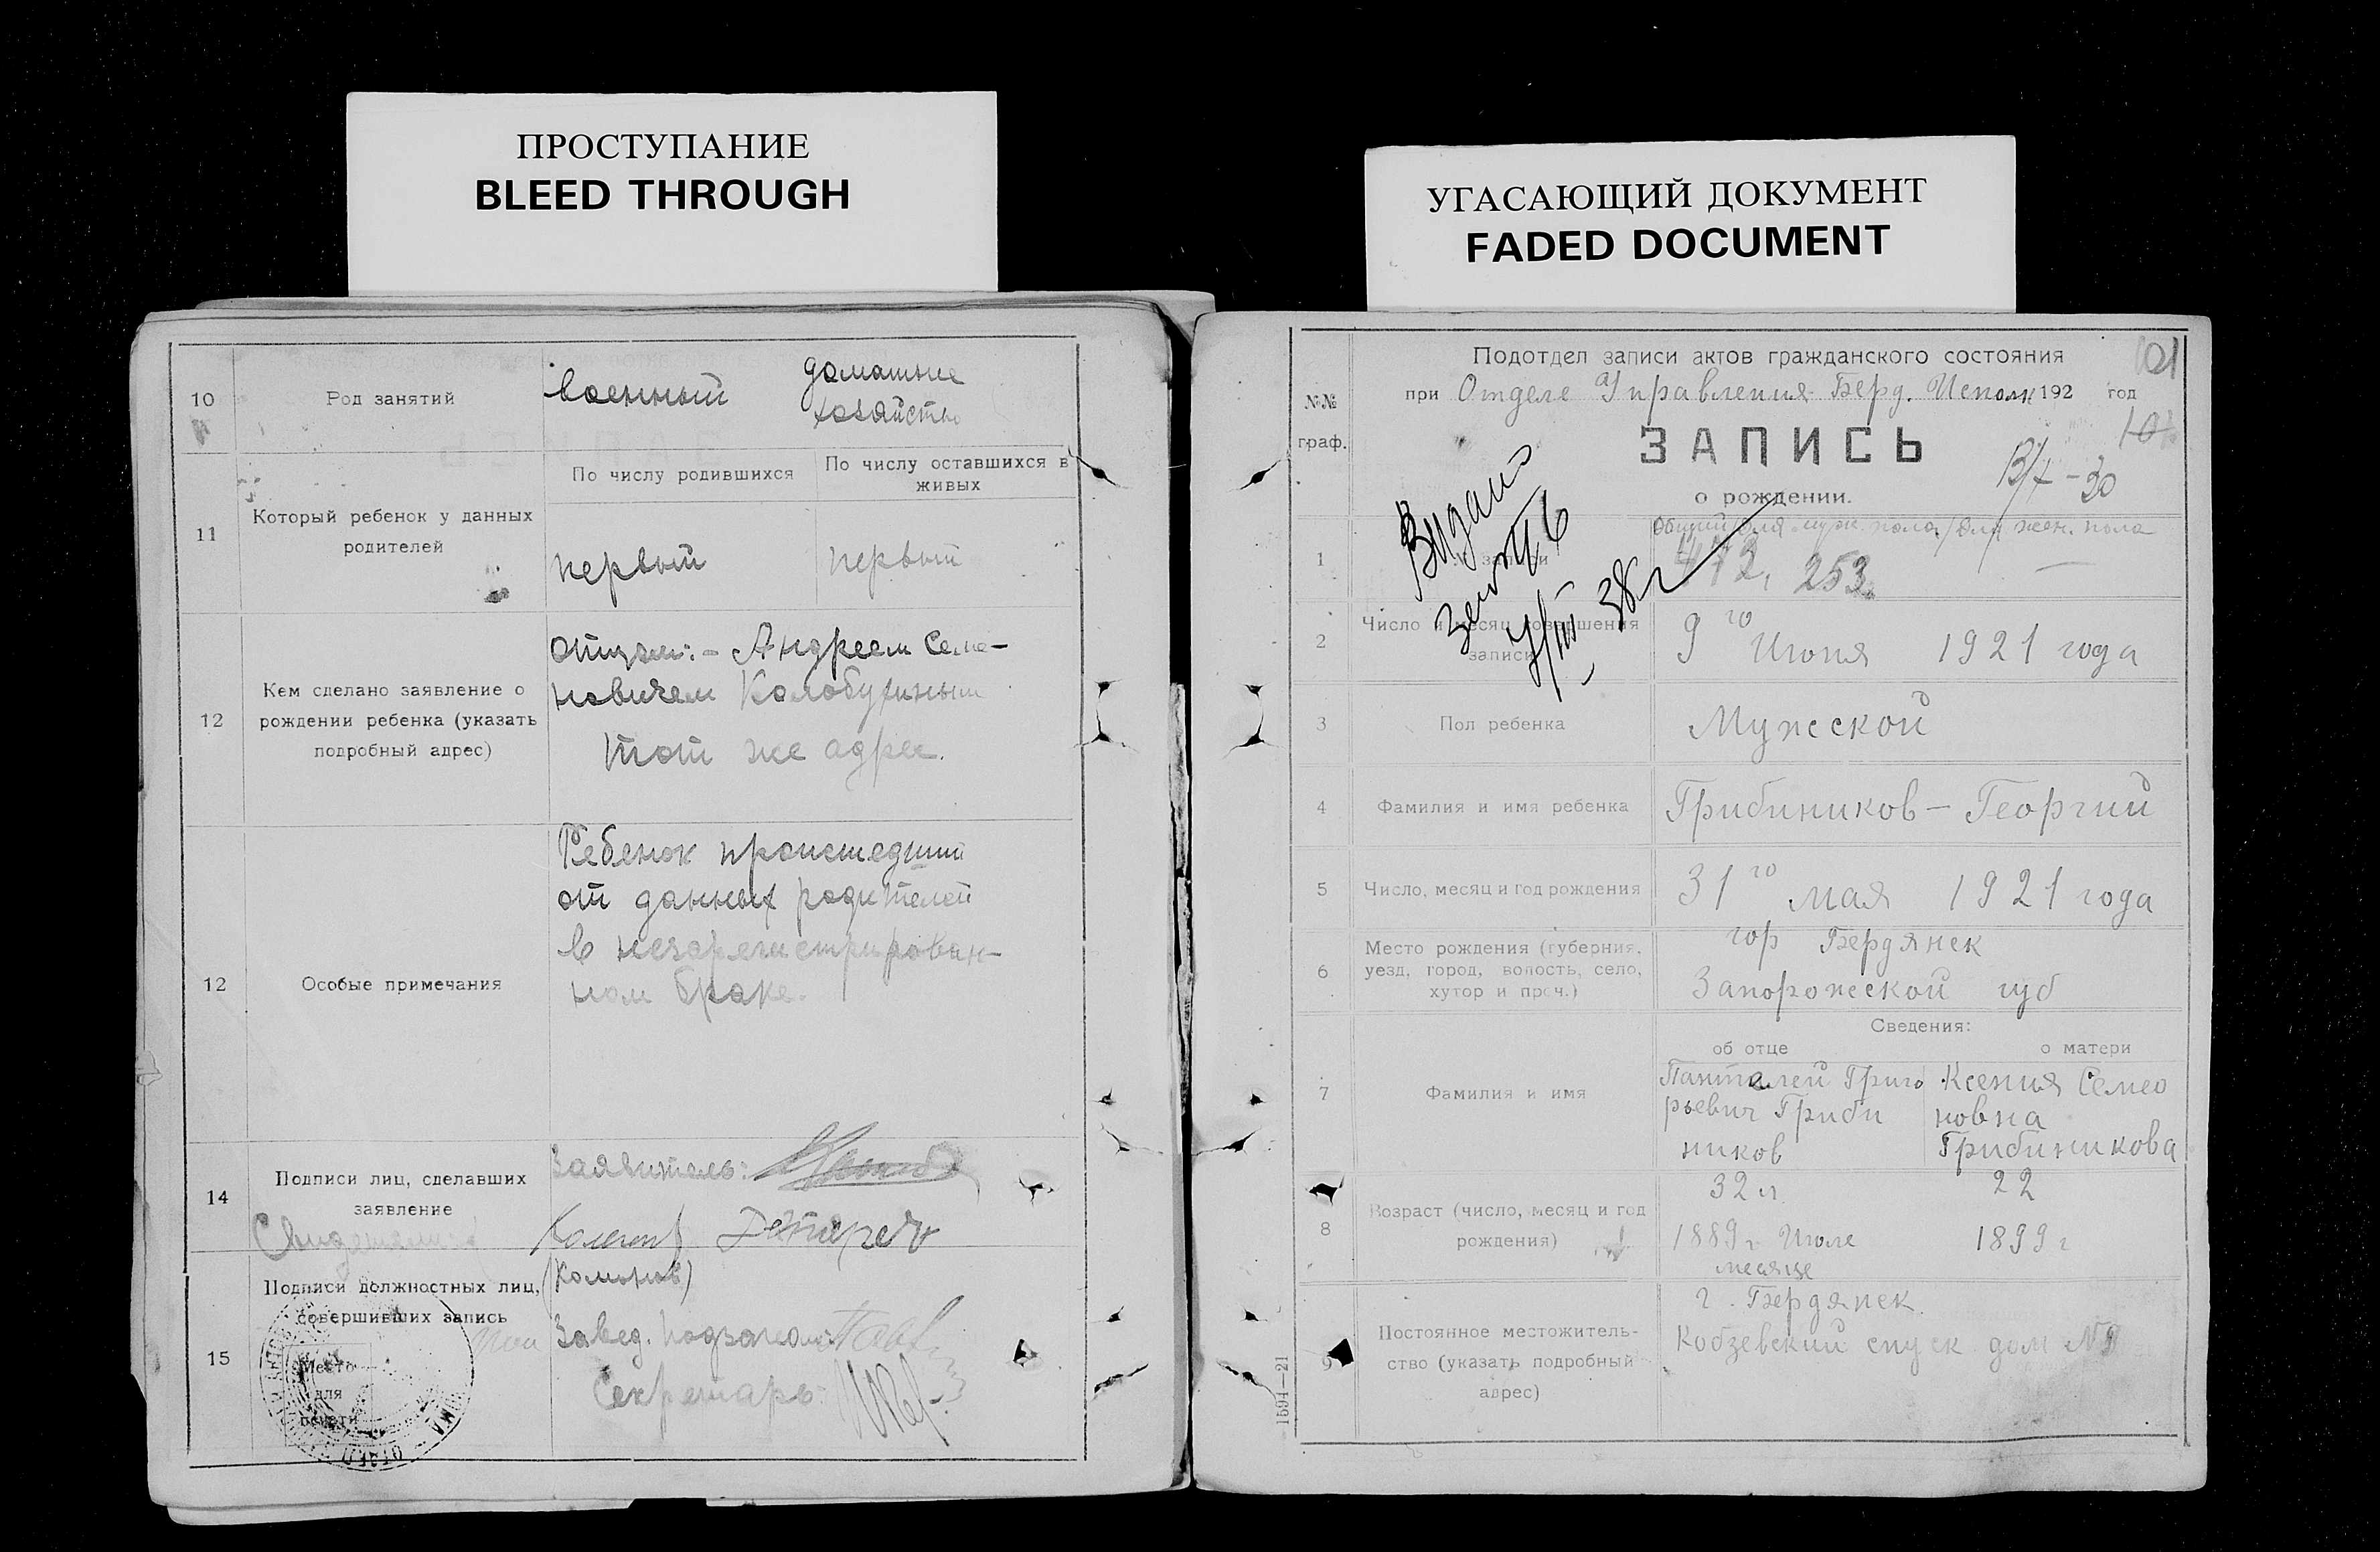 ПРОСТУПАНИЕ
BLEED THROUGH
10
Род занятий
военный
домашнее
хозяйство
11
Который ребенок у данных
родителей
По числу родившихся
По числу оставшихся в
живых
первый
первый
12
Кем сделано заявление о
рождении ребенка (указать
подробный адрес)
отцом:- Андреем Семе-
новичем
тот же адрес.
12
Особые примечания
Ребенок происшедший
от данных родителей
в незарегистрирован-
ном браке.
14
Подписи лиц, сделавших
заявление
Заявитель:
Свидетели:
(Комонов)
15
Подписи должностных лиц,
совершивших запись
Место
для
печати
Завед.
Секретарь:
УГАСАЮЩИЙ ДОКУМЕНТ
FADED DOCUMENT
Подотдел записи актов гражданского состояния
101
при Отделе Управления Берд. Исполк 192 год
№№
граф.
ЗАПИСЬ
о рождении.
Видано
7/III 38 г
1
записи
Общий/для муж. пола/для жен. пола
472, 253 —
2
Число и месяц совершения
записи
9го Июня 1921 года
3
Пол ребенка
Мужской
4
Фамилия и имя ребенка
Грибиников - Георгий
5
Число, месяц и год рождения
31го мая 1921 года
6
Место рождения (губерния,
уезд, город, волость, село,
хутор и проч.)
гор Бердянск
Запорожской губ
Сведения:
об отце
о матери
7
Фамилия и имя
Пантелей Григо
рьевич Гриби
ников
Ксения Семео
новна
Грибиникова
8
Возраст (число, месяц и год
рождения)
32 л.
1889 г Июле
месяце
22
1899 г
9
Постоянное местожитель-
ство (указать подробный
адрес)
г. Бердянск.
Кобзевский спуск дом №9
1594—21